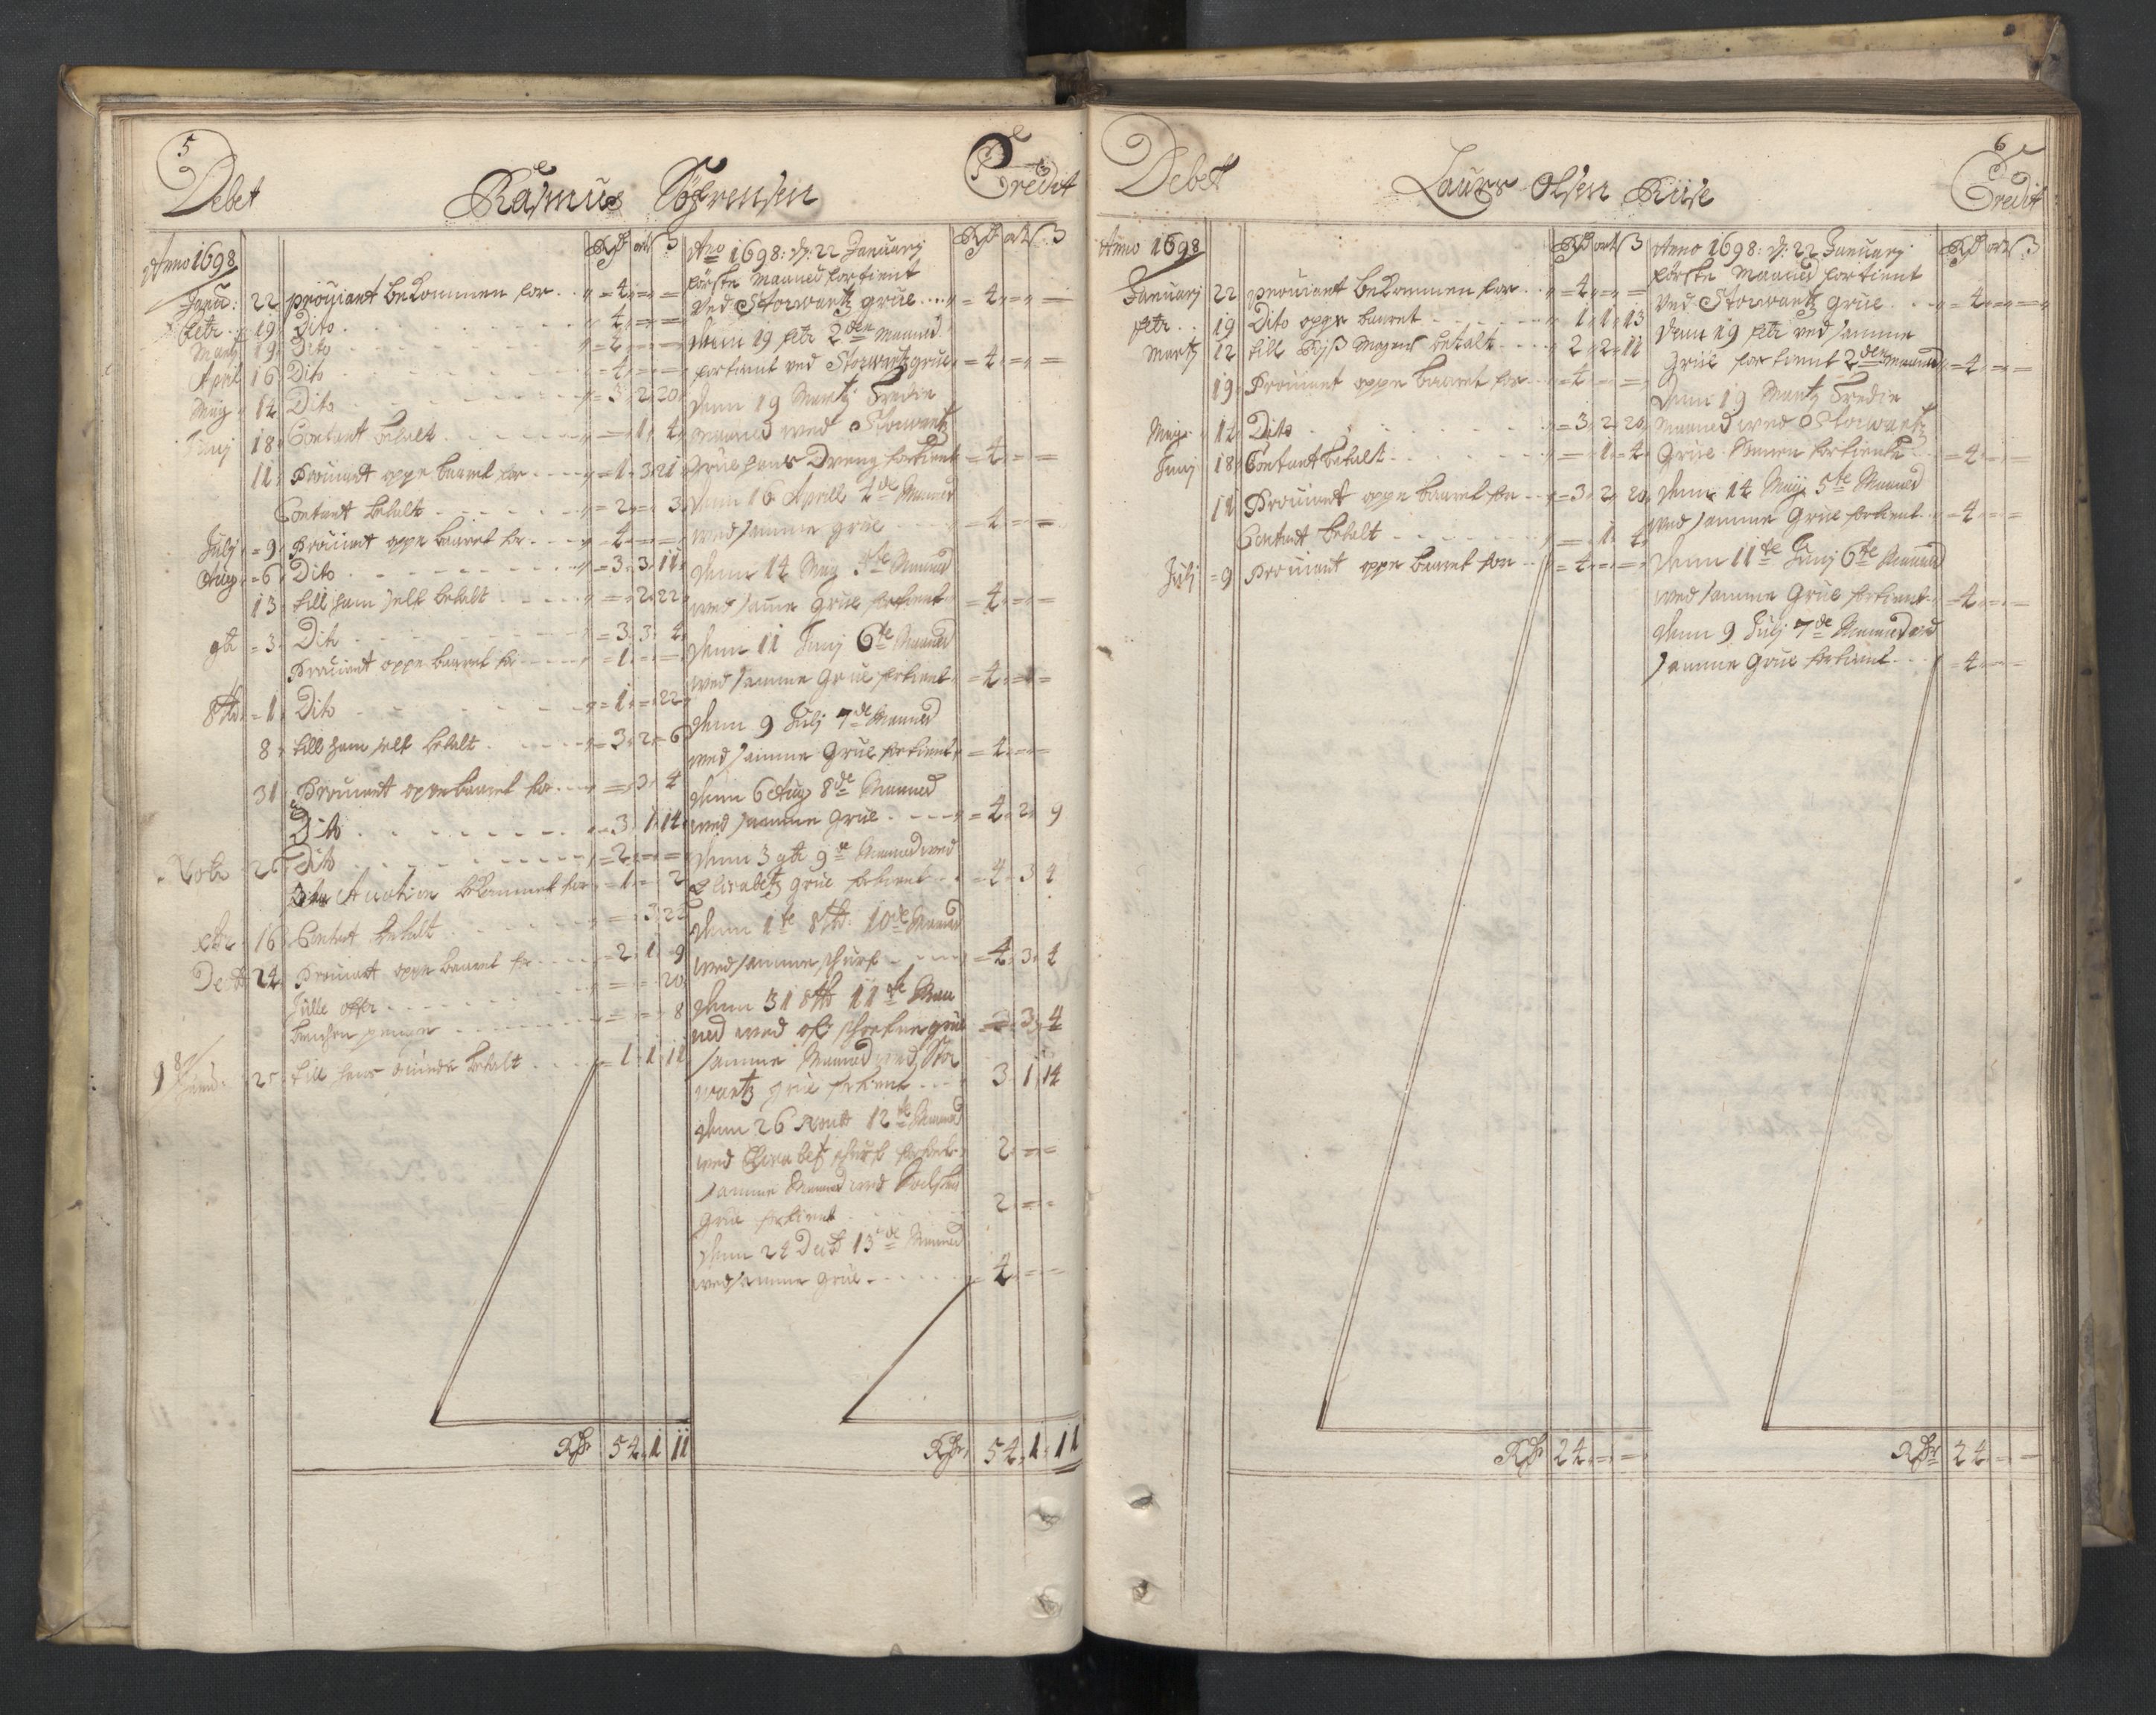 5
Debet
Rasmus Söfrensen
Credit
Anno 1698
Rdr ort ß
Janu: 22 prouiant bekommen for . . = 4 = =
febr. 19 Dito . . . . 4 = =
Marty 19 Dito . . . . = 4 = =
April 16 Dito . . . . 4 = =
Maij 14 Dito . . . . = 3 2 20
Junij 18 Contant betalt . . . . = 1 4
11 Prouiant oppe baaret for . . = 1 3 21
Contant betalt . . . . = 2 = 3
Julij = 9 Prouiant oppe baaret for . . 4 = =
Aug = 6 Dito . . . . = 3 3 11
13 till ham self betalt . . . . = 2 22
= 3 Dito . . . . = 3 3 4
Prouiant oppe baaret for . . = 1 = =
= 1 Dito . . . . = 1 = 22
8 till ham self betalt . . . . = 3 2 6
31 Prouiant oppe baaret for . . = 3 4
Dito . . . . 3 1 14
26 Dito . . . . = 2 = =
Auction bekommet for = 1 = 2
= 3 22
16 Contant betalt
Dec 24 Prouiant oppe baaret for . . = 2 1 9
Julle offer . . . . = = 20
penge . . . . = = 8
25 till hans quinde betalt . . . . 1 1 11
Rdr 54 1 11
Ano 1698: d: 22 Januarij
Rdr ort ß
förste Maaned fortient
ved Storwartz grue . . . . = 4 = =
denn 19 febr 2den Maaned
fortient ved Storwartz grue = 4 = =
denn 19 Martj Tredie
maaned wed Storwartz
grue hans Dreng fortient = 4 = =
denn 16 Aprill 4de Maaned
wed samme grue . . . . = 4 = =
denn 14 May 5te Maaned
wed samme Grue fortient = 4 = =
denn 11 Junij 6te Maaned
wed samme grue fortient = 4 = =
denn 9 Julj 7de Maaned
wed samme Grue fortient = 4 = =
denn 6 Aug 8de Maaned
wed samme grue . . . . = 4 2 9
denn 3 9de Maaned wed
Elisabetz grue fortient . . = 4 3 4
denn 1te 10de Maaned
wed samme schurf . . . . = 4 3 4
denn 31 11te Maa
ned wed grue = 3 4
samme Maaned wed Stor
wartz grue fortient . . . . 3 1 14
denn 26 12te Maaned
wed Elisabet schurf fortient 2 = =
samme Maaned wed
grue fortient . . . . 2 = =
denn 24 Decb 13de Maaned
wed samme grue . . . . 4 = =
Rdr 54 1 11
6
Debet
Laurs Olsen Riise
Credit
Anno 1698
Rdr ort ß
Januarij 22 prouiant bekommen for . . = 4 = =
febr. . 19 Dito oppe baaret . . . . 1 1 13
Martj 12 till Riiß Mogens betalt . . . . 2 2 11
19 Prouiant oppe baaret for . . = 4 = =
Maij 14 Dito . . . . = 3 2 20
Junij 18 Contant betalt . . . . = 1 4
11 Prouiant oppe baaret for . . = 3 2 20
Contant betalt . . . . = 1 4
Julij = 9 Prouiant oppe baaret for . . = 4 = =
Rdr 24 = =
Anno 1698: d: 22 Januarij
Rdr ort ß
förste Maaned fortient
ved Storwartz grue . . . . = 4 = =
denn 19 febr ved samme
Grue fortient 2den Maaned = 4 = =
denn 19 Martj Tredie
Maaned wed Storwartz
Grue fortient = 4 = =
denn 14 Maij 5te Maaned
wed samme Grue fortient = 4 = =
denn 11te Junij 6te Maaned
wed samme Grue fortient = 4 = =
denn 9 Julij 7de Maaned wed
samme Grue fortient . . . . = 4 = =
Rdr 24 = =